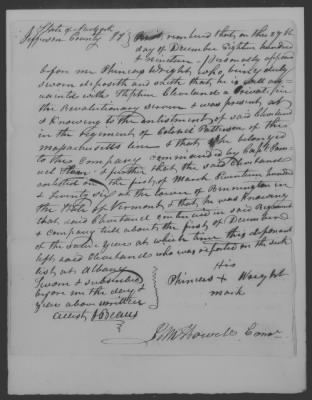 State of New York
Jefferson County SS
remembered that on this 29th
day of December Eighteen hundred
& nineteen - personally appeared
before me Phineas Wright who, being duly
sworn deposeth and saith that he is well acq-
uainted with Stephen Cleveland a Private in
the Revolutionary Service & was present at
& knowing to the enlistment of said Cleveland
in the Regiment of Colonel Patterson of the
Massachusetts line & that he belonged
to the Company commanded by Capt
& further that the said Cleveland
enlisted on the first of March Seventeen hundred
& Seventy at the town of Bennington in
the State of Vermont & that he was knowing
that said Cleveland continued in said Regiment
& company till about the first of December
of the same year at which time this deponent
left said Cleveland who was reported on the sick
list at Albany
Sworn & subscribed
before me the day &
year above written
attest
His
Phineas + Wright
mark